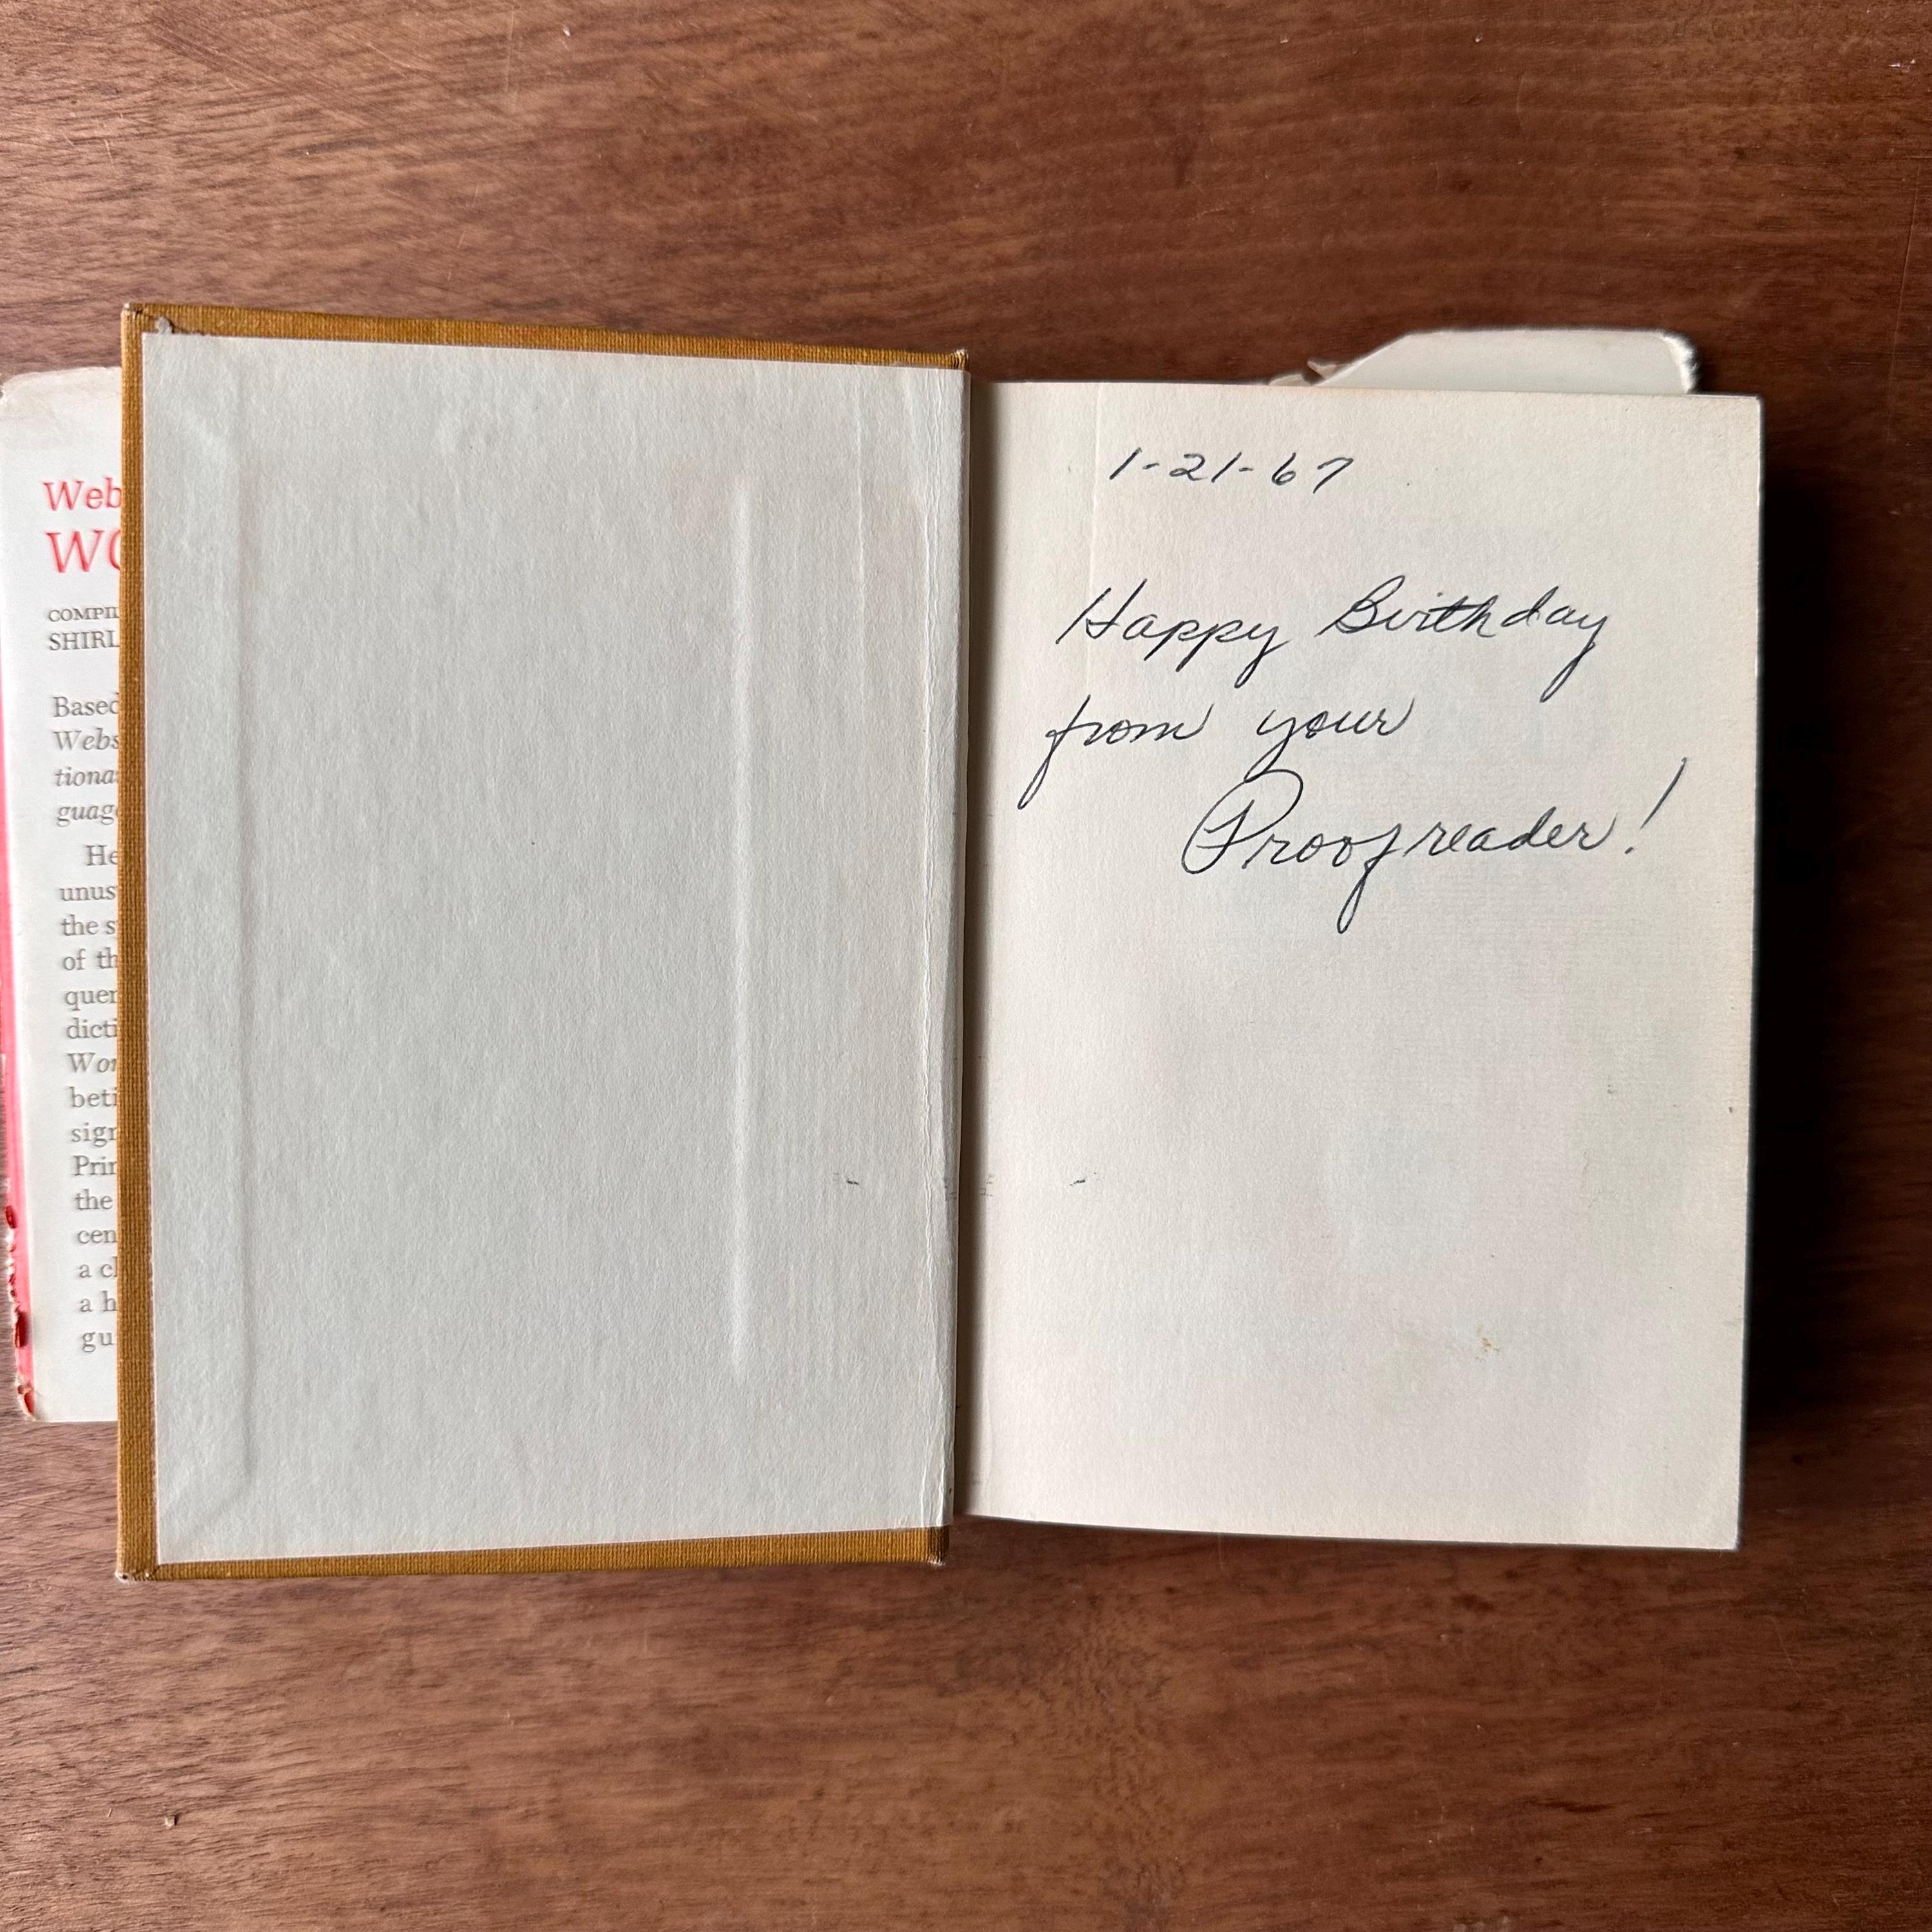 Web
WO
COMPIL
SHIRL
Based
Webs
tiona
guage
He
unus
the s
of th
quen
dicti
Wor
beti
sign
Prin
the
cen
a cl
a h
gu
1-21-67
Happy Birthday
from your
Proofreader!